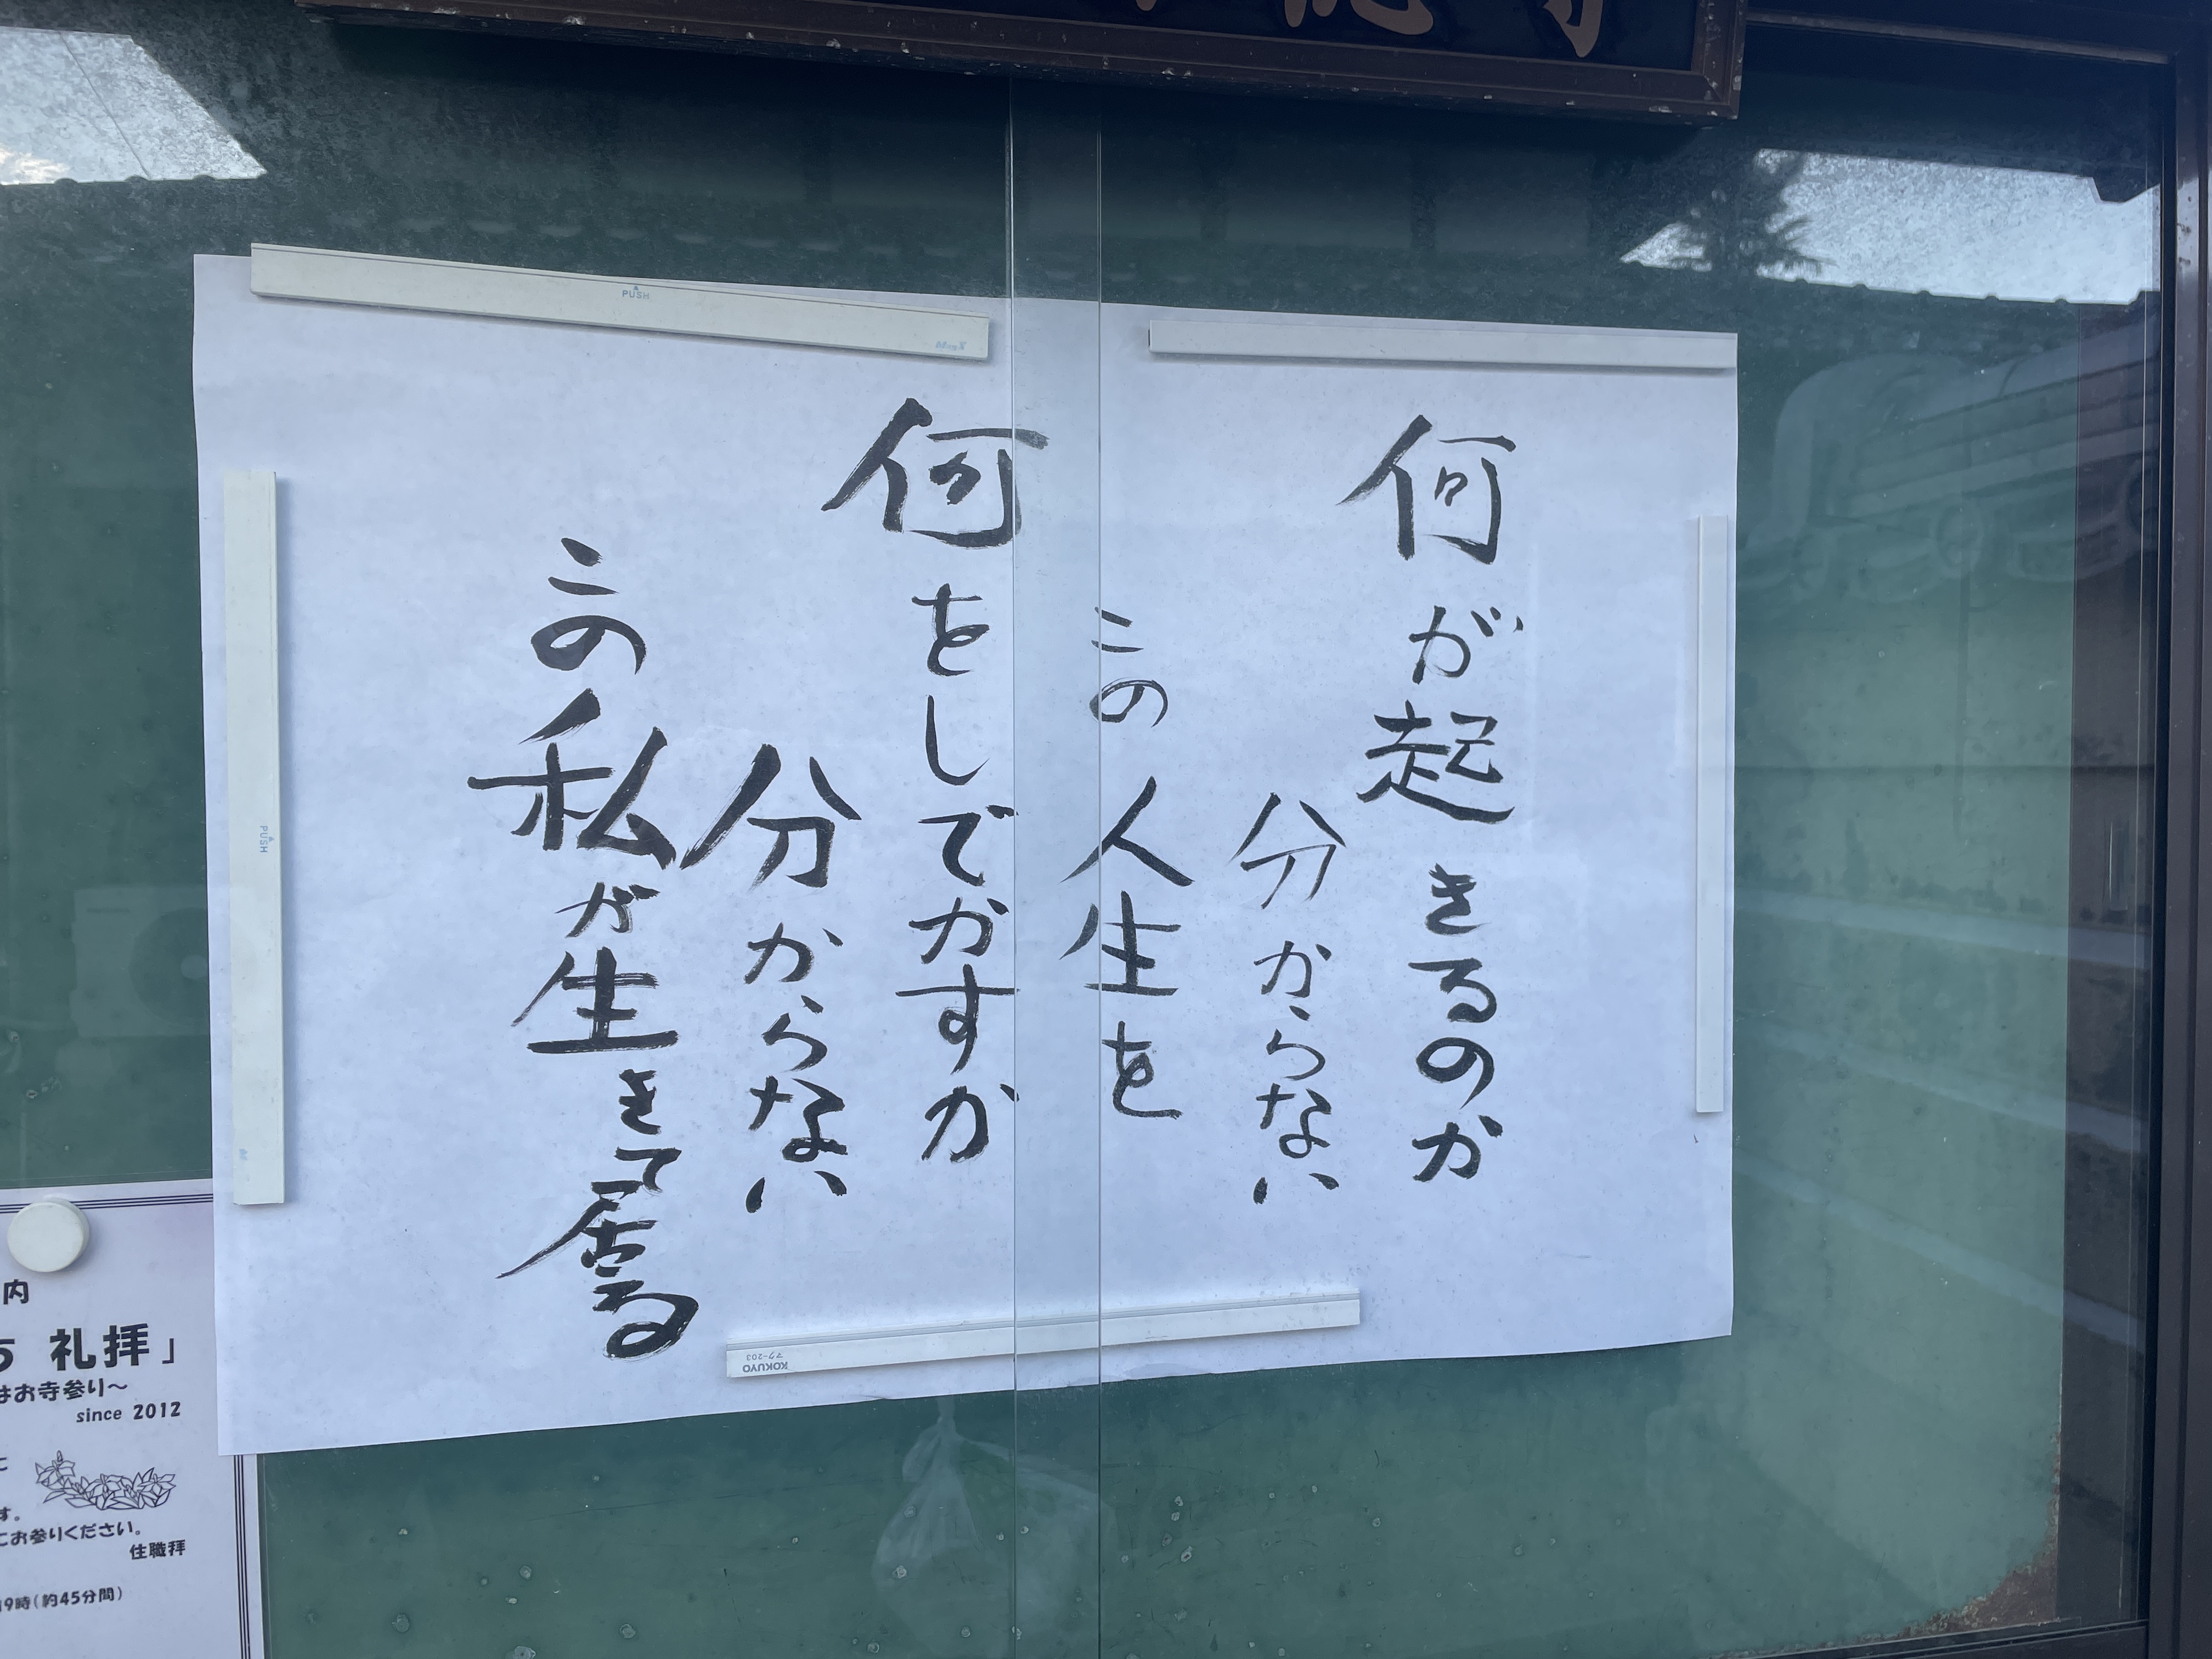 何が起きるのか
分からない
この人生を
何をしでかすか
分からない
この私が生きて居る
PUSH
PUSH
KOKUYO
マク-203
内
礼拝」
はお寺参り～
since 2012
す。
にお参りください。
住職拝
9時(約45分間)